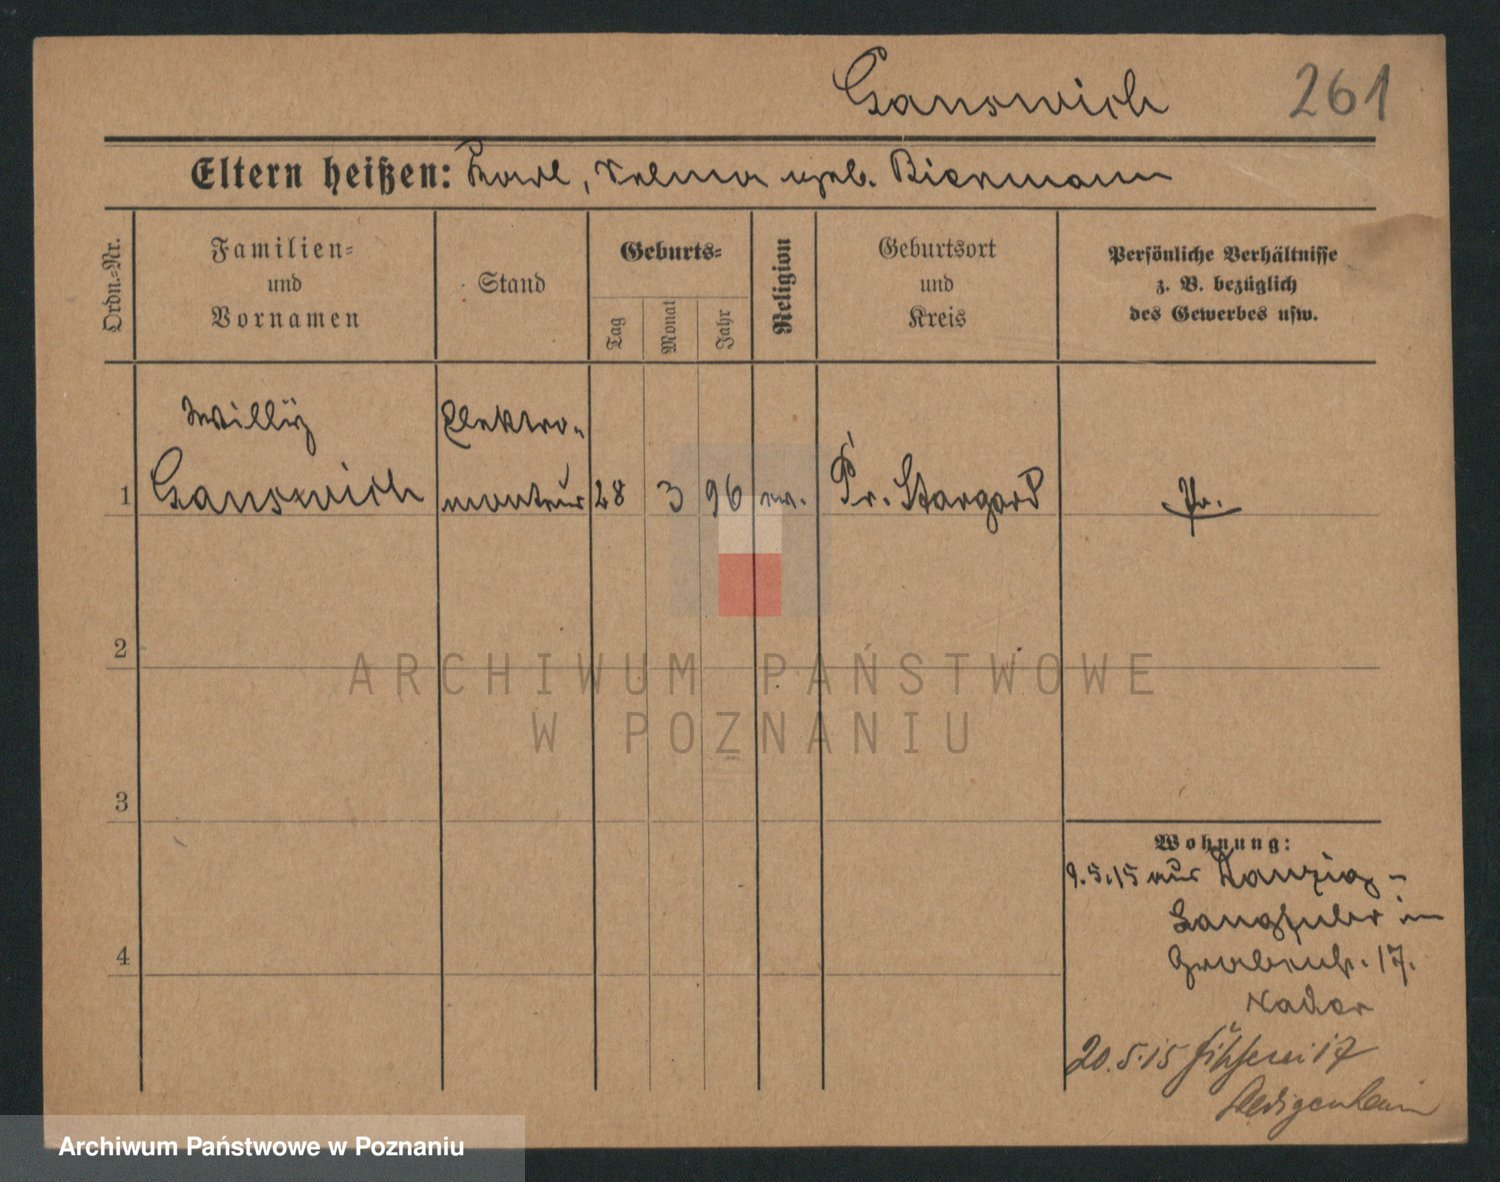 Ganswich 261
Eltern heißen: Karl, Selma geb. Biermann
Ordn.-Nr.
Familien-
und
Vornamen
Stand
Geburts-
Tag
Monat
Jahr
Religion
Geburtsort
und
Kreis
Persönliche Verhältnisse
z. B. bezüglich
des Gewerbes usw.
Willÿ Elektro-
1 Ganswich monteur 28 3 96 ev. Pr. Stargard Pr.
2
3
4
Wohnung:
9.5.15 aus Danzig-
Langfuhr in
Grabenstr. 17.
20.5.15 Fischerei 17
Ledigenheim
ARCHIWUM PAŃSTWOWE
W POZNANIU
Archiwum Państwowe w Poznaniu